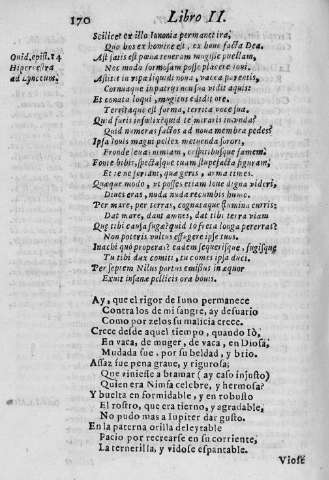 170 Libro II.
Scilicet ex illo Iunonia permanet ira,
Quo bos ex homine est, ex boue facta Dea.
Ouid. epist. 14
Hipermestra
ad Lynceum.
At satis est pœna teneram mugisse puellam,
Nec modo formosam posse placere Ioui.
Astitit in ripa liquidi noua vacca parentis,
Cornuaque in patrijs non sua vidit aquis:
Et conata loqui, mugitus edidit ore.
Territaque est forma, territa voce sua.
Quid furis infelix? quid te miraris in vnda?
Quid numeras factos ad noua membra pedes?
Ipsa Iouis magni pellex metuenda sorori,
Fronde leuas nimiam, cespitibusque famem.
Fonte bibis, spectasque tuam stupefacta figuram,
Et te ne feriant, quæ geris, arma times.
Quæque modo, vt posses etiam Ioue digna videri,
Diues eras, nuda nuda recumbis humo.
Per mare, per terras, cognataque flumina curris:
Dat mare, dant amnes, dat tibi terra viam
Que tibi causa fugæ? quid Io freta longa pererras?
Non poteris vultus effugere ipse tuos.
Inachi quò properas? eadem sequerisque, fugisque
Tu tibi dux comiti, tu comes ipsa duci.
Per septem Nilus portus emissus in æquor
Exuit insanæ pellicis ora bouis.
Ay, que el rigor de Iuno permanece
Contra los de mi sangre, ay desuario
Como por zelos su malicia crece.
Crece desde aquel tiempo, quando Iò,
En vaca, de muger, de vaca, en Diosa,
Mudada fue, por su beldad, y brio.
Assaz fue pena graue, y rigurosa;
Que viniesse a bramar (ay caso injusto)
Quien era Nimfa celebre, y hermosa?
Y buelta en formidable, y en robusto
El rostro, que era tierno, y agradable,
No pudo mas a Iupiter dar gusto.
En la paterna orilla deleytable
Pacio por recrearse en su corriente,
La ternerilla, y vidose espantable.
Viose